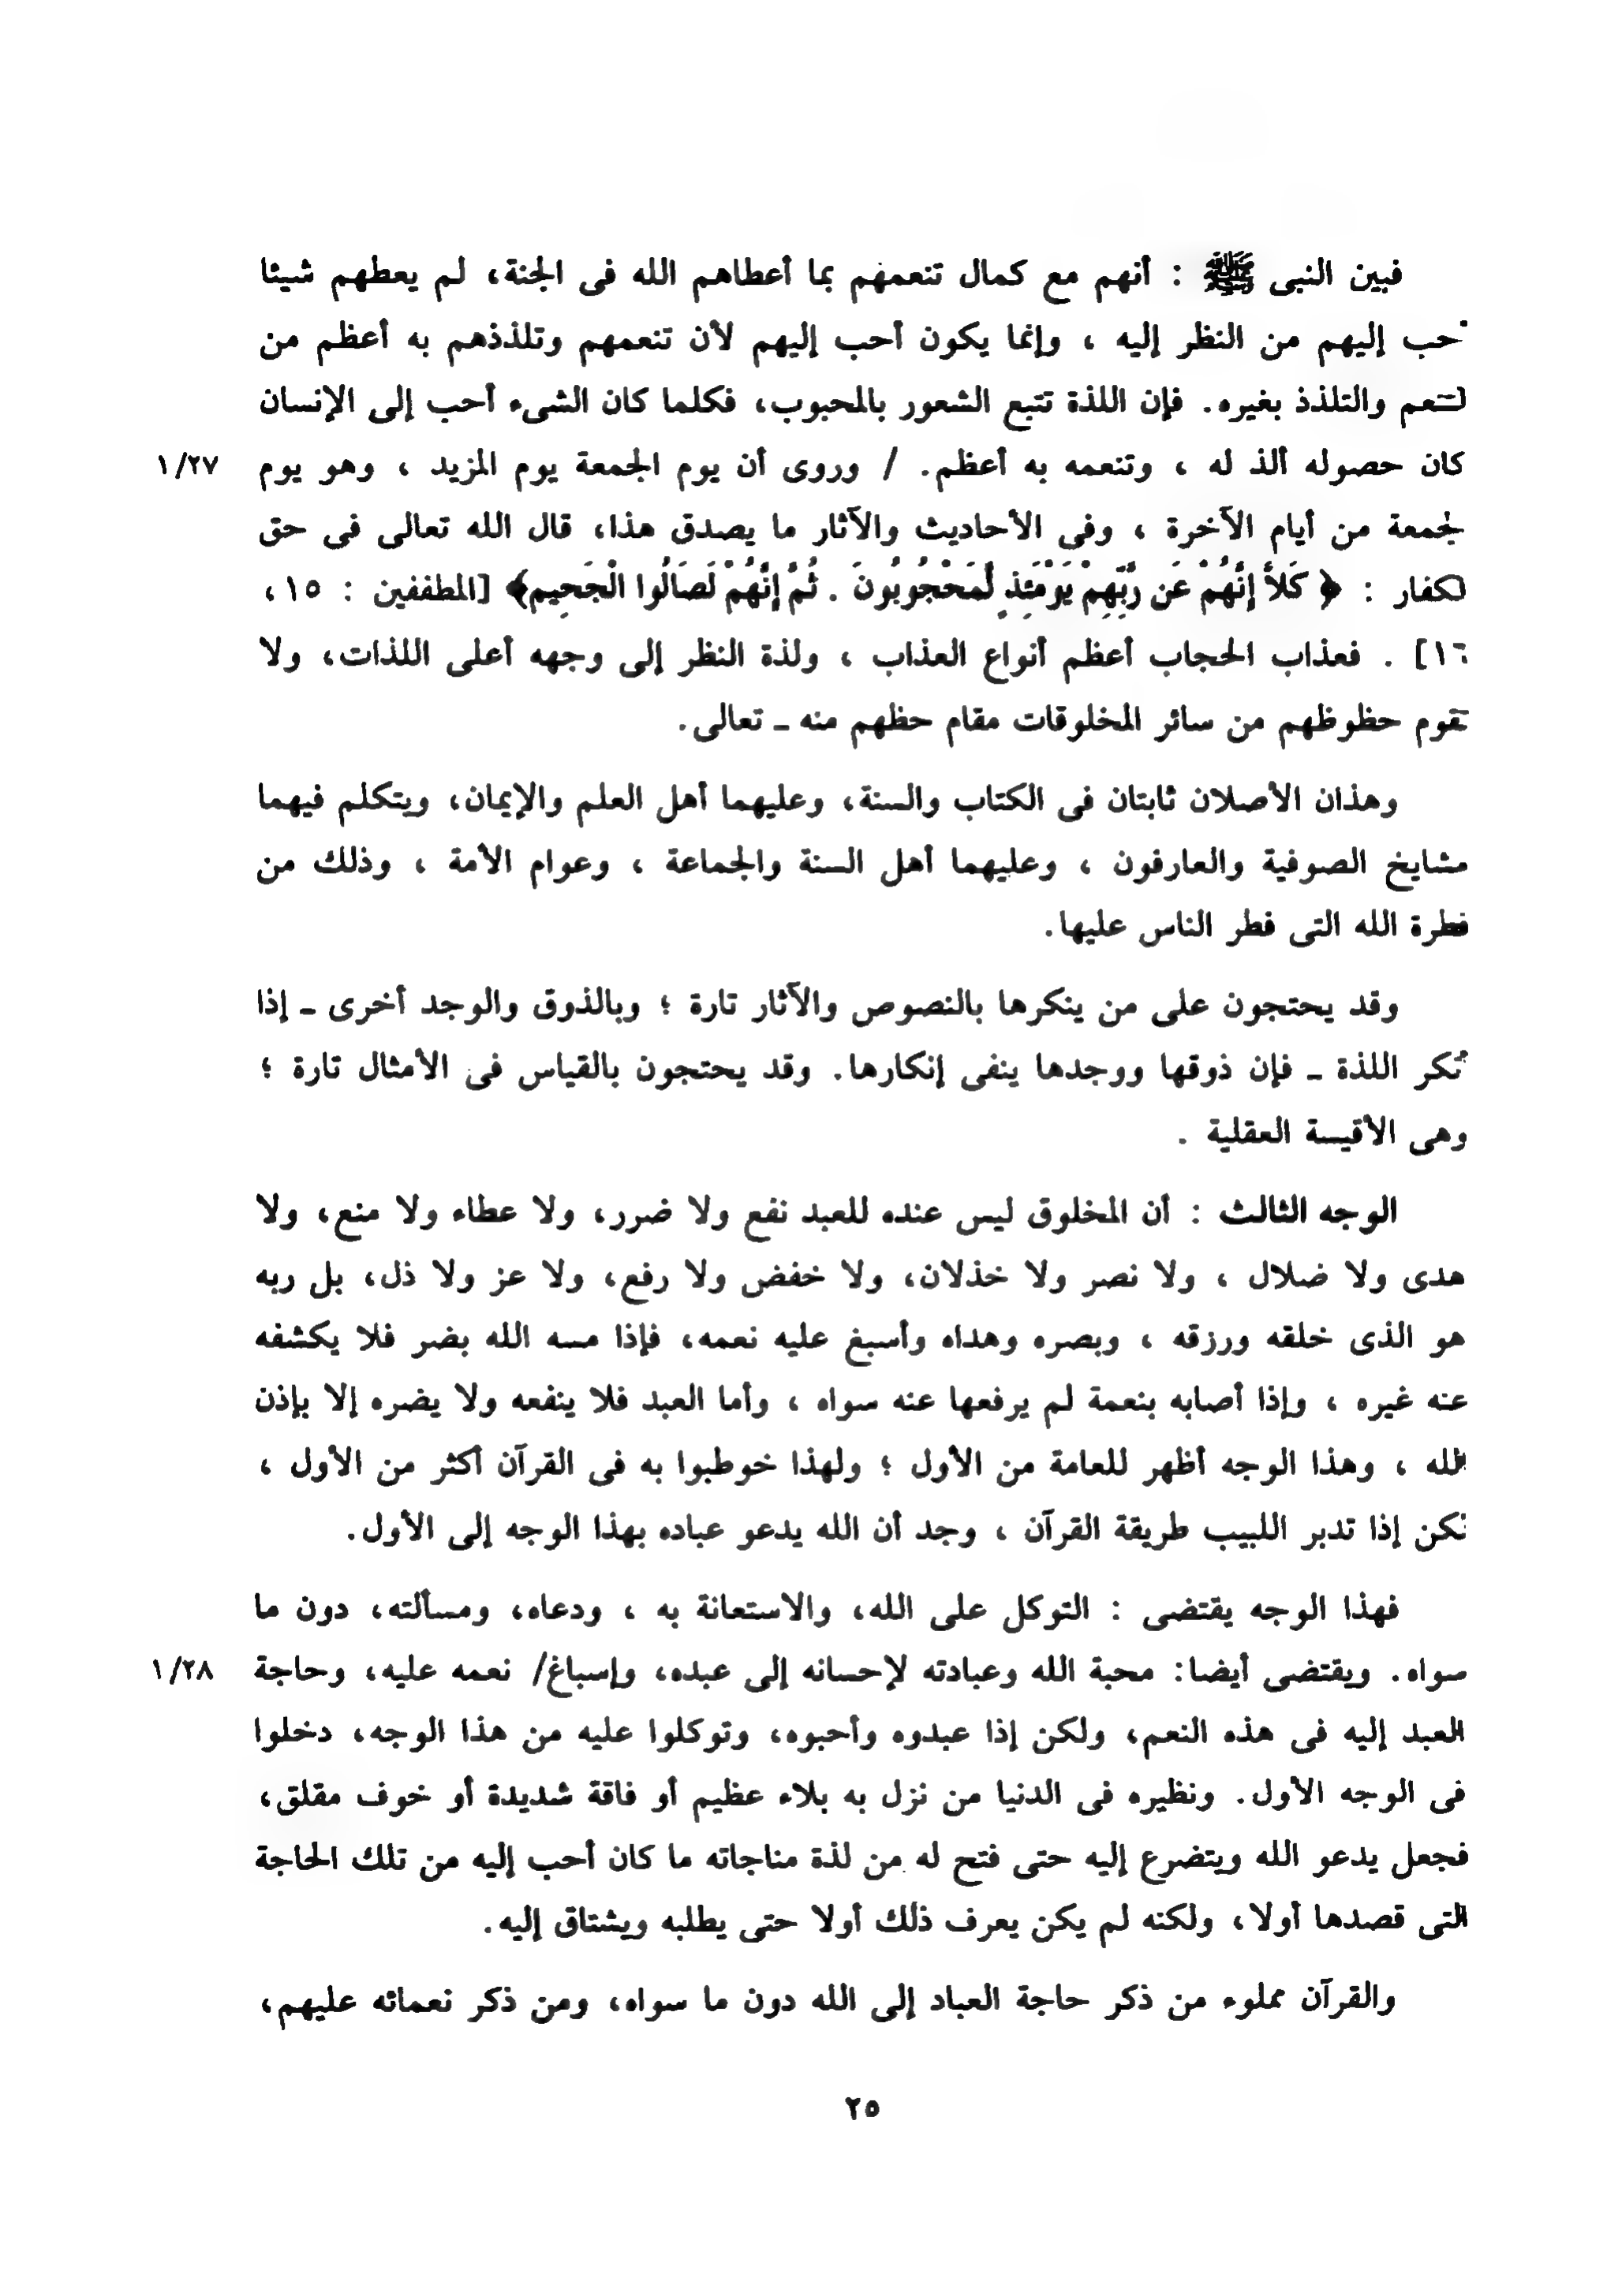 فبين النبى ﷺ : أنهم مع كمال تنعمهم بما أعطاهم الله فى الجنة، لم يعطهم شيئا
أحب إليهم من النظر إليه ، وإنما يكون أحب إليهم لأن تنعمهم وتلذذهم به أعظم من
التنعم والتلذذ بغيره. فإن اللذة تتبع الشعور بالمحبوب، فكلما كان الشىء أحب إلى الإنسان
كان حصوله ألذ له ، وتنعمه به أعظم. / وروى أن يوم الجمعة يوم المزيد ، وهو يوم
١/٢٧
الجمعة من أيام الآخرة ، وفى الأحاديث والآثار ما يصدق هذا، قال الله تعالى فى حق
الكفار : ﴿ كَلاَّ إِنَّهُمْ عَن رَّبِّهِمْ يَوْمَئِذٍ لَّمَحْجُوبُونَ . ثُمَّ إِنَّهُمْ لَصَالُوا الْجَحِيمِ﴾ [المطففين : ١٥،
١٦] . فعذاب الحجاب أعظم أنواع العذاب ، ولذة النظر إلى وجهه أعلى اللذات، ولا
تقوم حظوظهم من سائر المخلوقات مقام حظهم منه ـ تعالى.
وهذان الأصلان ثابتان فى الكتاب والسنة، وعليهما أهل العلم والإيمان، ويتكلم فيهما
مشايخ الصوفية والعارفون ، وعليهما أهل السنة والجماعة ، وعوام الأمة ، وذلك من
فطرة الله التى فطر الناس عليها.
وقد يحتجون على من ينكرها بالنصوص والآثار تارة ؛ وبالذوق والوجد أخرى ـ إذا
أنكر اللذة ـ فإن ذوقها ووجدها ينفى إنكارها. وقد يحتجون بالقياس فى الأمثال تارة ؛
وهى الأقيسة العقلية .
الوجه الثالث : أن المخلوق ليس عنده للعبد نفع ولا ضرر، ولا عطاء ولا منع، ولا
هدى ولا ضلال ، ولا نصر ولا خذلان، ولا خفض ولا رفع، ولا عز ولا ذل، بل ربه
هو الذى خلقه ورزقه ، وبصره وهداه وأسبغ عليه نعمه، فإذا مسه الله بضر فلا يكشفه
عنه غيره ، وإذا أصابه بنعمة لم يرفعها عنه سواه ، وأما العبد فلا ينفعه ولا يضره إلا بإذن
الله ، وهذا الوجه أظهر للعامة من الأول ؛ ولهذا خوطبوا به فى القرآن أكثر من الأول ،
لكن إذا تدبر اللبيب طريقة القرآن ، وجد أن الله يدعو عباده بهذا الوجه إلى الأول.
فهذا الوجه يقتضى : التوكل على الله، والاستعانة به ، ودعاه، ومسألته، دون ما
سواه. ويقتضى أيضا: محبة الله وعبادته لإحسانه إلى عبده، وإسباغ/ نعمه عليه، وحاجة
١/٢٨
العبد إليه فى هذه النعم، ولكن إذا عبدوه وأحبوه، وتوكلوا عليه من هذا الوجه، دخلوا
فى الوجه الأول. ونظيره فى الدنيا من نزل به بلاء عظيم أو فاقة شديدة أو خوف مقلق،
فجعل يدعو الله ويتضرع إليه حتى فتح له من لذة مناجاته ما كان أحب إليه من تلك الحاجة
التى قصدها أولا، ولكنه لم يكن يعرف ذلك أولا حتى يطلبه ويشتاق إليه.
والقرآن مملوء من ذكر حاجة العباد إلى الله دون ما سواه، ومن ذكر نعمائه عليهم،
٢٥